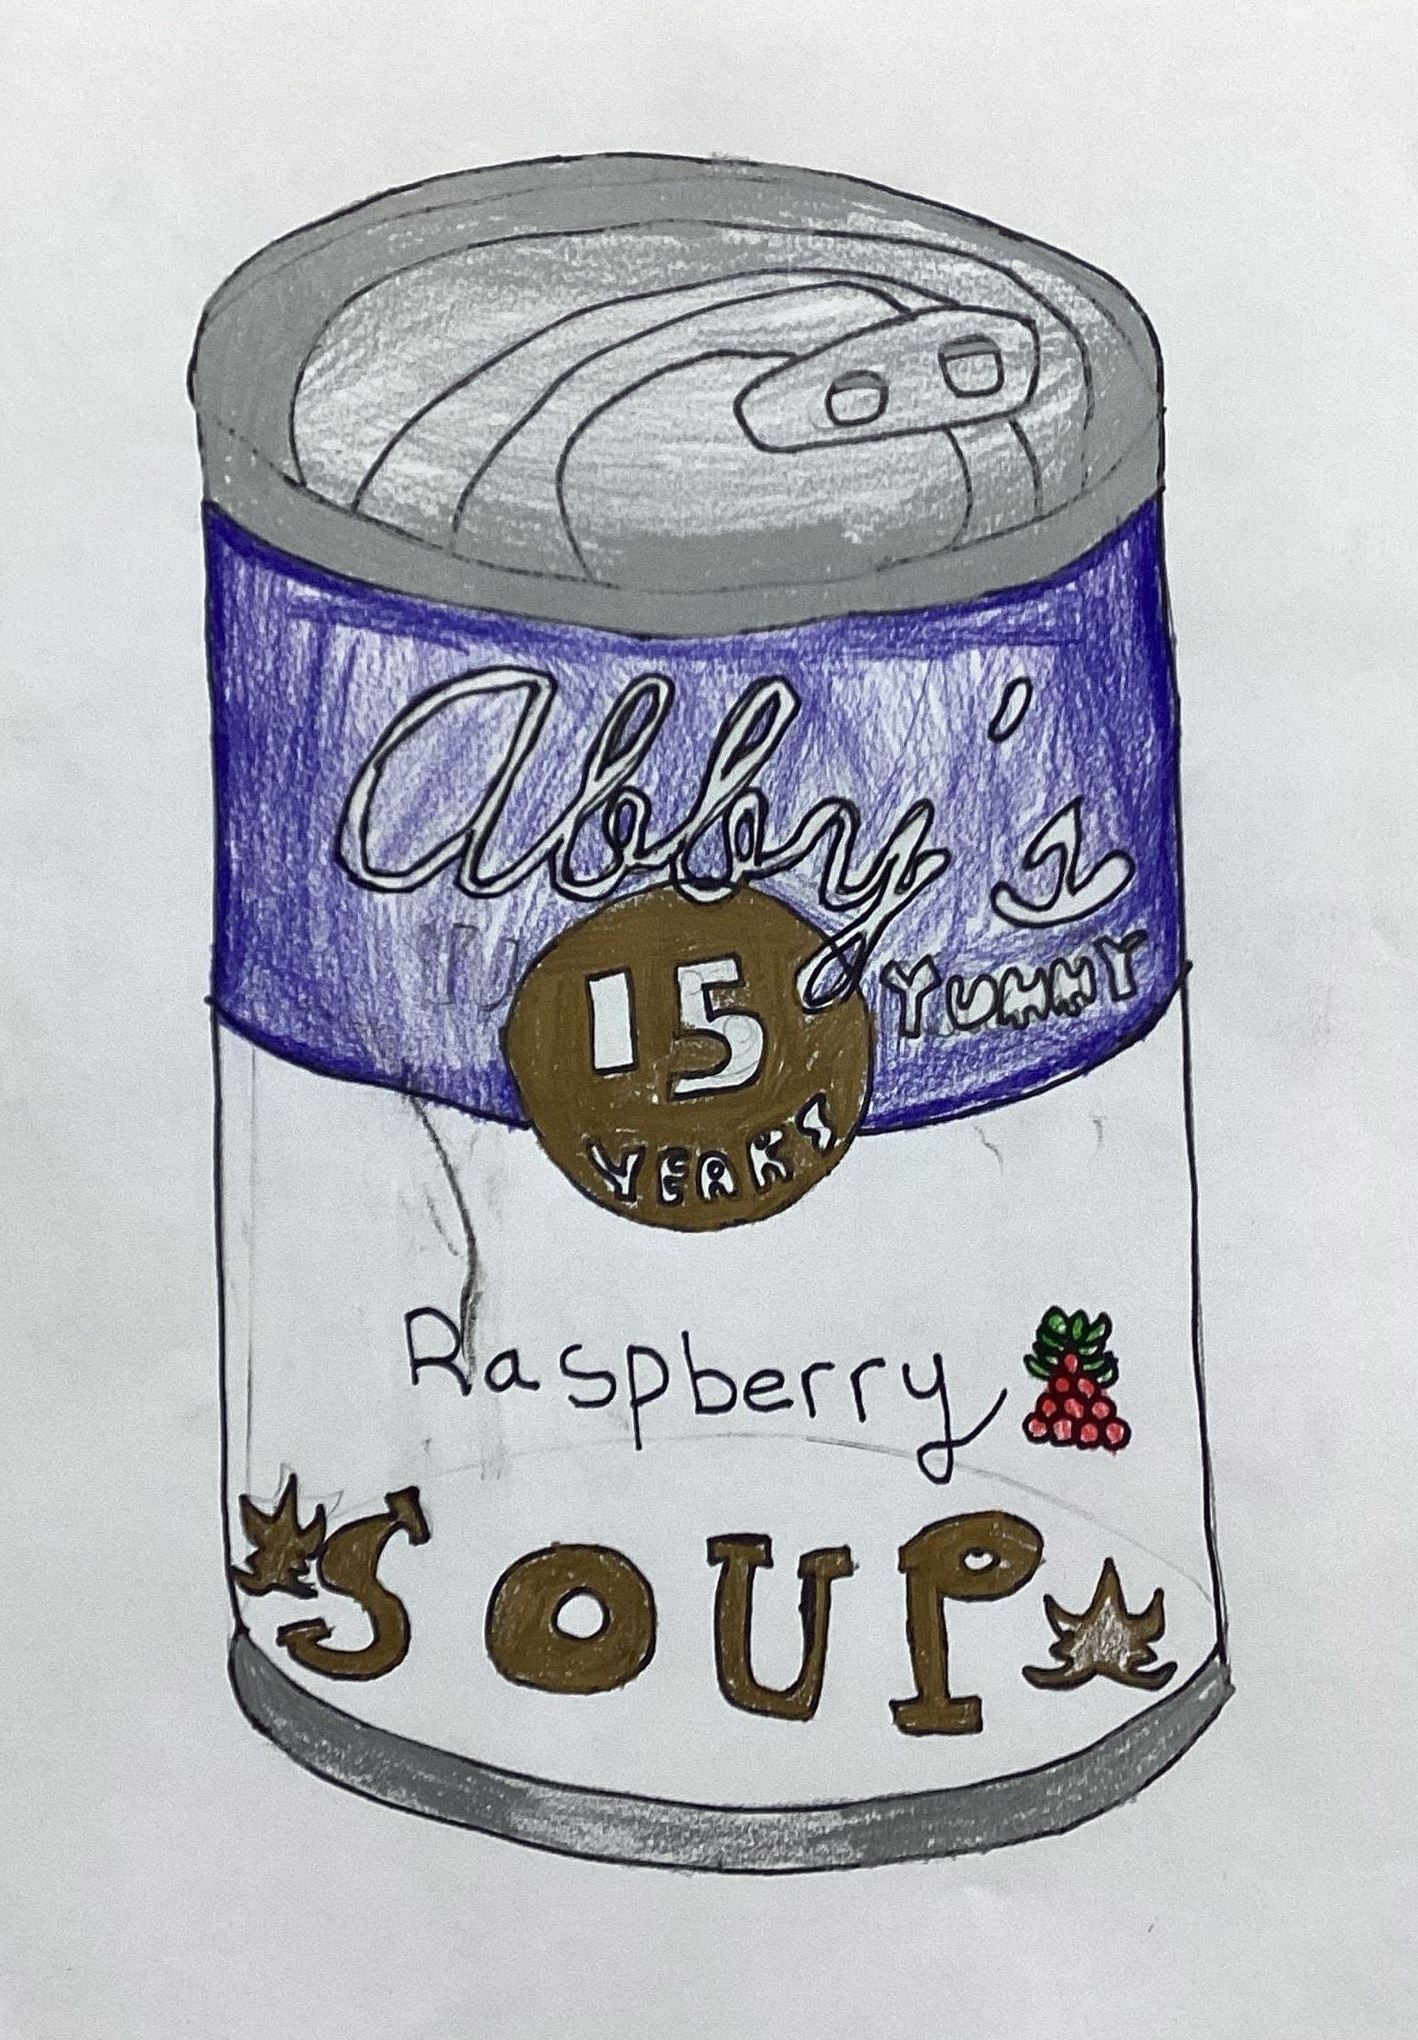 Abby's
YUMMY
15
YEARS
Raspberry
SOUP